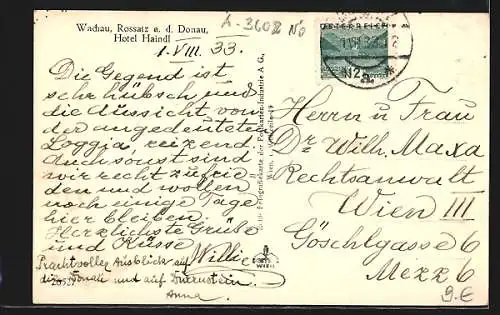 Wachau, Rossatz a. d. Donau,
Hotel Haindl
1. VIII. 33.
Die Gegend ist
sehr hübsch und
die Aussicht von
der angedeuteten
Loggia, reizend.
Auch sonst sind
wir recht zufrie
den und wollen
noch einige Tage
hier bleiben.
Herzlichste Grüße
und Küsse
Willie
Prachtvoller Ausblick auf
die Donau und auf Duernstein,
Anna
ÖSTERREICH
12
Herrn u Frau
Dr Wilh. Maxa
Rechtsanwalt
Wien III
Göschlgasse 6
Mezz 6
9.E
WIEN